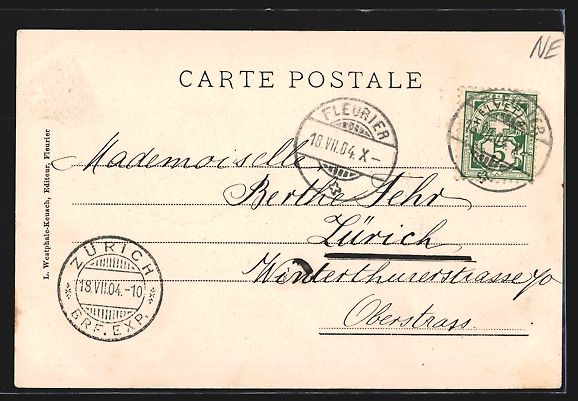 NE
CARTE POSTALE
FLEURIER
18.VII.04.X-
HELVETIA
FLEURIER
Mademoiselle
Berthe Fehr
Zürich
Winterthurerstrasse 70
Oberstrass
L. Westphale-Keusch, Editeur, Fleurier
ZÜRICH
18.VII.04.-10
BRF. EXP.